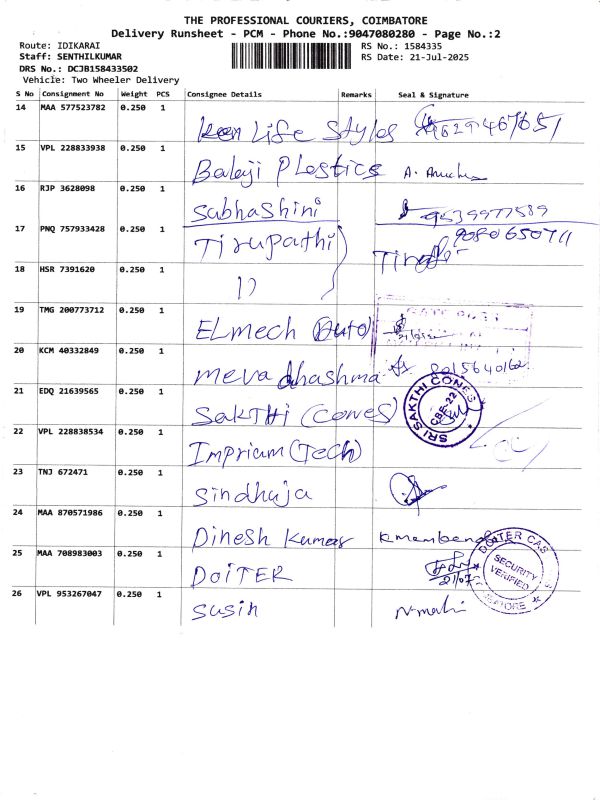 THE PROFESSIONAL COURIERS, COIMBATORE
Delivery Runsheet - PCM - Phone No.:9047080280 - Page No.:2
Route: IDIKARAI RS No.: 1584335
Staff: SENTHILKUMAR RS Date: 21-Jul-2025
DRS No.: DCJB158433502
Vehicle: Two Wheeler Delivery
S No Consignment No Weight PCS Consignee Details Remarks Seal & Signature
14 MAA 577523782 0.250 1 Life Styles
15 VPL 228833938 0.250 1 Balaji Plastics
16 RJP 3628098 0.250 1 Subhashini 9539977589
17 PNQ 757933428 0.250 1 Tirupathi
18 HSR 7391620 0.250 1 1)
19 TMG 200773712 0.250 1 ELmech (Auto)
20 KCM 40332849 0.250 1 meva dhashma 8015640162
21 EDQ 21639565 0.250 1 SaKTHi (CONES) SRI SAKTHI CONES CBE-22
22 VPL 228838534 0.250 1 Imprium (Tech)
23 TNJ 672471 0.250 1 Sindhuja
24 MAA 870571986 0.250 1 Dinesh Kumar
25 MAA 708983003 0.250 1 DOITER 21/07 DOITER CAS SECURITY VERIFIED
26 VPL 953267047 0.250 1 Susin